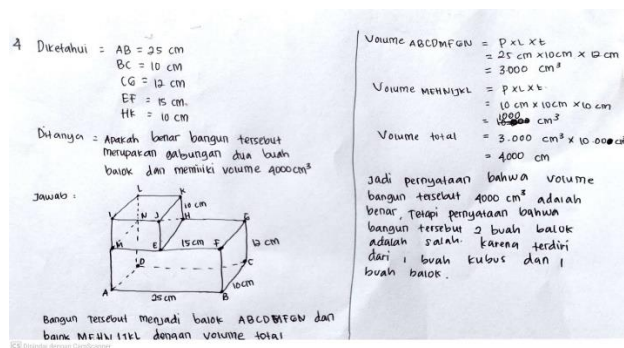 4 Diketahui = AB = 25 cm
BC = 10 cm
CG = 12 cm
EF = 15 cm.
HK = 10 cm
Ditanya = Apakah benar bangun tersebut
merupakan gabungan dua buah
balok dan memiliki volume 4000cm³
Jawab :
L
K
10 cm
I
N
J
H
G
M
E
15 cm
F
12 cm
D
C
10cm
A
25 cm
B
Bangun tersebut menjadi balok ABCDMFGN dan
MEHNIJKL dengan volume total
Volume ABCDMFGN = P x L x t
= 25 cm x 10cm x 12 cm
= 3000 cm³
Volume MEHNIJKL = P x L x t.
= 10 cm x 10cm x 10 cm
= 1000 cm³
Volume total = 3.000 cm³ x 10.00
= 4000 cm
Jadi pernyataan bahwa volume
bangun tersebut 4000 cm³ adalah
benar, Tetapi pernyataan bahwa
bangun tersebut 2 buah balok
adalah salah. karena terdiri
dari 1 buah kubus dan 1
buah balok.
CS